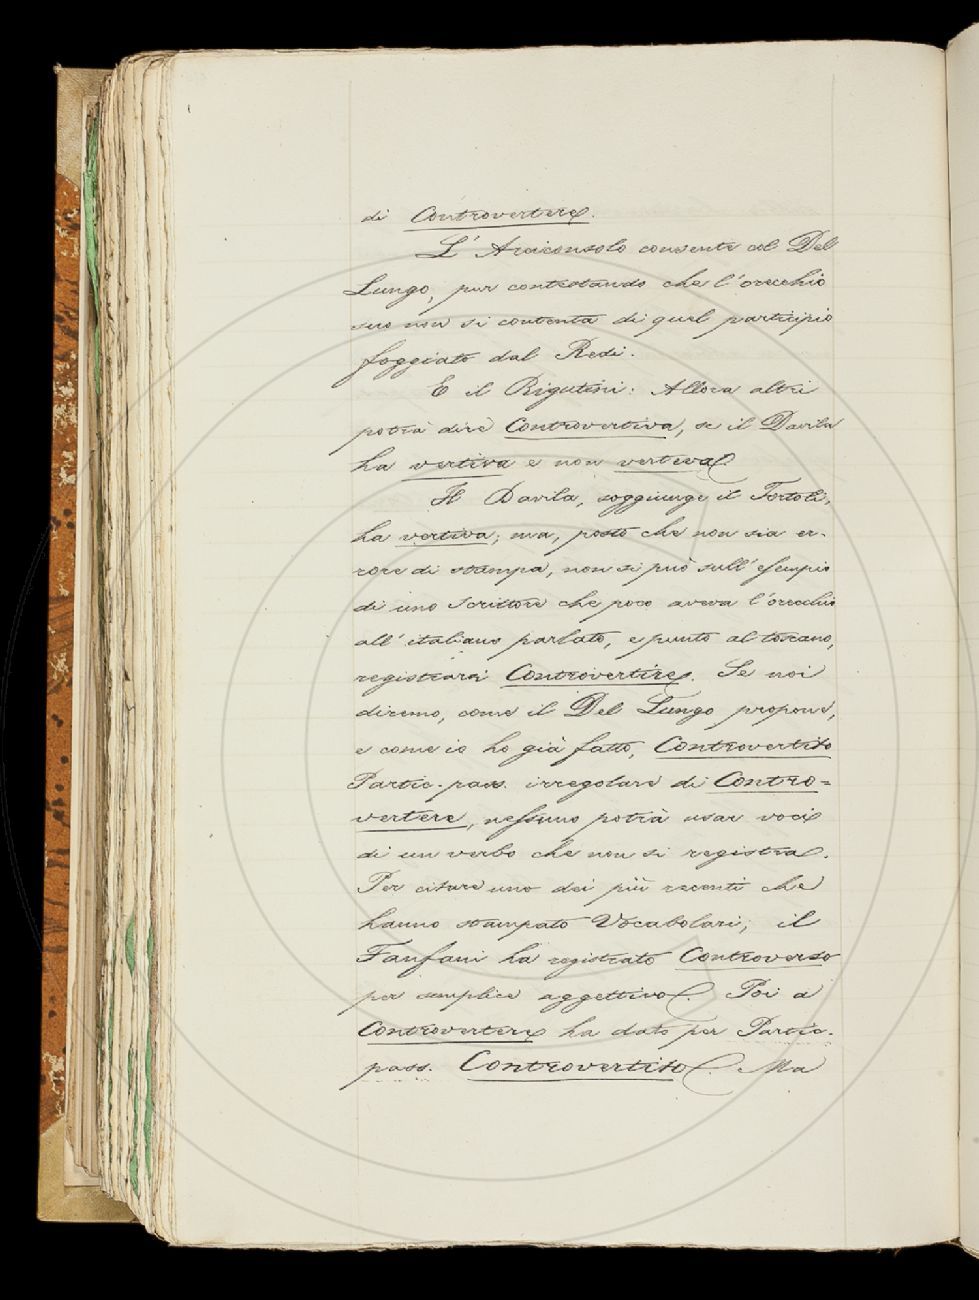 di Controvertere.
L' Arciconsolo consente col Del
Lungo, pur contestando che l'orecchio
suo non si contenta di quel participio
foggiato dal Redi.
E il Rigutini: Allora altri
potrà dire Controvertiva, se il Davila
ha vertiva e non verteva.
Il Davila, soggiunge il Tortoli,
ha vertiva; ma, posto che non sia er-
rore di stampa, non si può sull' esempio
di uno Scrittore che poco aveva l'orecchio
all' italiano parlato, e punto al toscano,
registrarsi Controvertire. Se noi
diremo, come il Del Lungo propone,
e come io ho già fatto, Controvertito
Partic. pass. irregolare di Contro=
vertere, nessuno potrà usar voci
di un verbo che non si registra.
Per citare uno dei più recenti che
hanno stampato Vocabolari, il
Fanfani ha registrato Controverso
per semplice aggettivo. Poi a
Controvertere ha dato per Partic.
pass. Controvertito. Ma